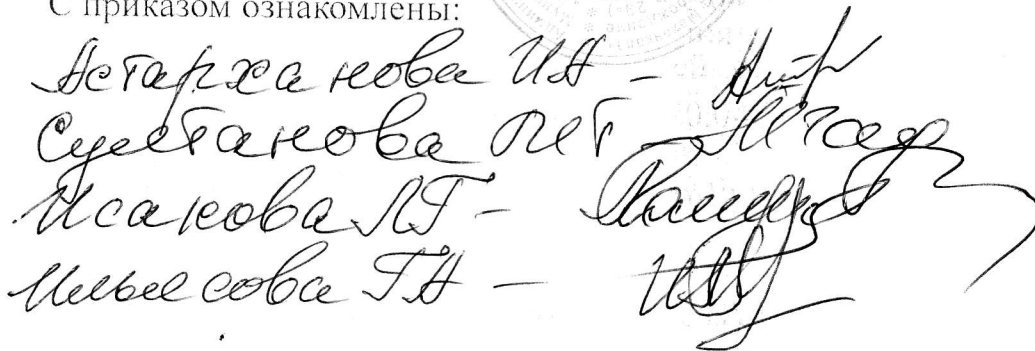 С приказом ознакомлены:
Астарханова ИА -
Султанова
Исакова ЛГ -
Ильясова ГА -